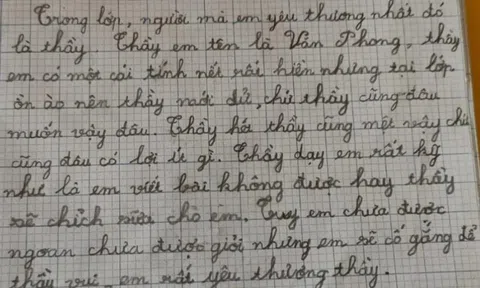 Trong lớp, người mà em yêu thương nhất đó
là thầy. Thầy em tên là Văn Phong, thầy
em có một cái tính nết rất hiền nhưng tại lớp
ồn ào nên thầy mới dữ, chứ thầy cũng đâu
muốn vậy đâu. Thầy hét thầy cũng mệt vậy chứ
cũng đâu có lợi ít gì. Thầy dạy em rất kỹ
như là em viết bài không được hay thầy
sẽ chích sửa cho em. Tuy em chưa được
ngoan chưa được giỏi nhưng em sẽ cố gắng để
thầy vui, em rất yêu thương thầy.